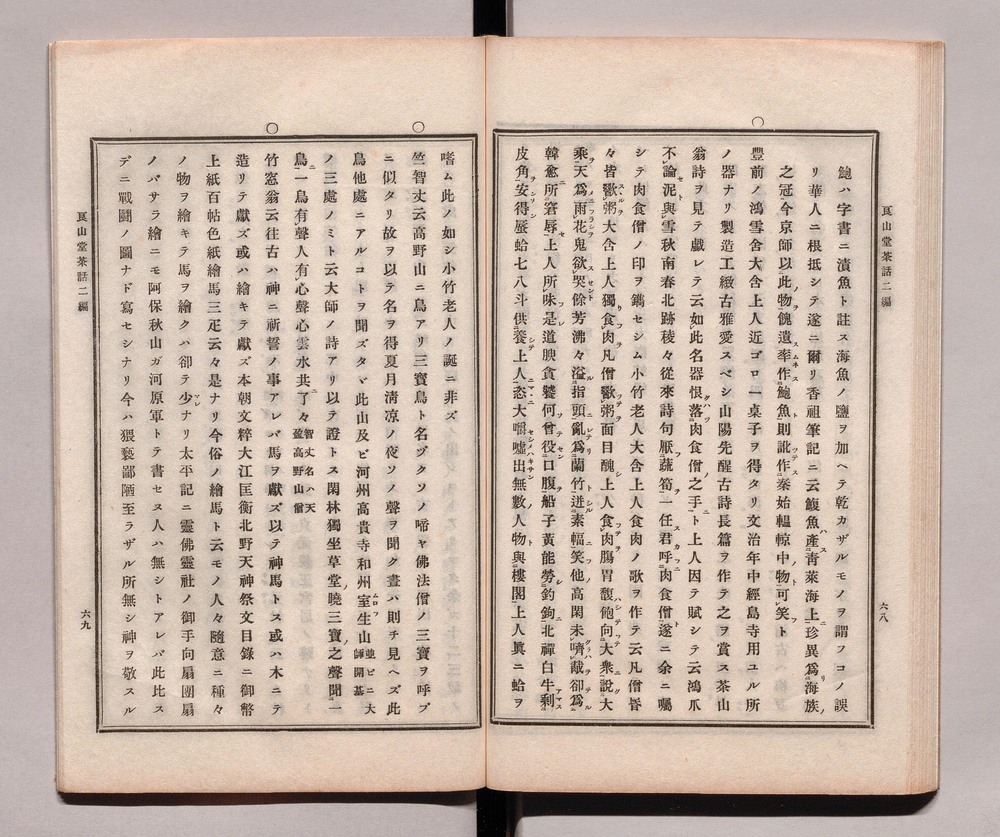 瓦山堂茶話二編
六八
鮑ハ字書ニ漬魚ト註ス海魚ノ鹽ヲ加ヘテ乾カザルモノヲ謂フコノ誤
リ華人ニ根抵シテ遂ニ爾リ香祖筆記ニ云鰒魚產靑萊海上珍異爲海族
之冠今京師以此物餽遺率作鮑魚則訛作秦始轀輬中物可笑ト
豐前ノ鴻雪舍大含上人近ゴロ一桌子ヲ得タリ文治年中經島寺用ユル所
ノ器ナリ製造工緻古雅愛スベシ山陽先醒古詩長篇ヲ作テ之ヲ賞ス茶山
翁詩ヲ見テ戲レテ云如此名器恨落肉食僧之手ト上人因テ賦シテ云鴻爪
不論泥與雪秋南春北跡稜々從來詩句厭蔬筍一任君呼肉食僧遂ニ余ニ囑
シテ肉食僧ノ印ヲ鐫セシム小竹老人大含上人食肉ノ歌ヲ作テ云凡僧皆
々皆歠粥大含上人獨食肉凡僧歠粥面目醜上人食肉腸胃馥飽向大衆說大
乘天爲雨花鬼欲哭餘芳沸々溢指頭亂爲蘭竹迸素幅笑他高閑未嚌胾卻爲
韓愈所窘辱上人所味是道腴貪饕何曾役口腹船子黃能勞釣鉤北禪白牛剩
皮角安得蜃蛤七八斗供養上人恣大嚼噓出無數人物與樓閣上人眞ニ蛤ヲ
嗜ム此ノ如シ小竹老人ノ誕ニ非ズ
竺智丈云高野山ニ鳥アリ三寶鳥ト名ヅクソノ啼ヤ佛法僧ノ三寶ヲ呼ブ
ニ似タリ故ヲ以テ名ヲ得夏月淸凉ノ夜ソノ聲ヲ聞ク晝ハ則チ見ヘズ此
鳥他處ニアルコトヲ聞ズタヾ此山及ビ河州高貴寺和州室生山並ビニ大師開基
ノ三處ノミト云大師ノ詩アリ以テ證トス閑林獨坐草堂曉三寶之聲聞一
鳥一鳥有聲人有心聲心雲水共了々智丈名ハ天𥁋高野山僧
竹窓翁云往古ハ神ニ祈誓ノ事アレバ馬ヲ獻ズ以テ神馬トス或ハ木ニテ
造リテ獻ズ或ハ繪キテ獻ズ本朝文粹大江匡衡北野天神祭文目錄ニ御幣
上紙百帖色紙繪馬三疋云々是ナリ今俗ノ繪馬ト云モノ人々隨意ニ種々
ノ物ヲ繪キテ馬ヲ繪クハ卻テ少ナリ太平記ニ靈佛靈社ノ御手向扇團扇
ノバサラ繪ニモ阿保秋山ガ河原軍トテ書セヌ人ハ無シトアレバ此比ス
デニ戰鬪ノ圖ナド寫セシナリ今ハ猥褻鄙陋至ラザル所無シ神ヲ敬スル
瓦山堂茶話二編
六九